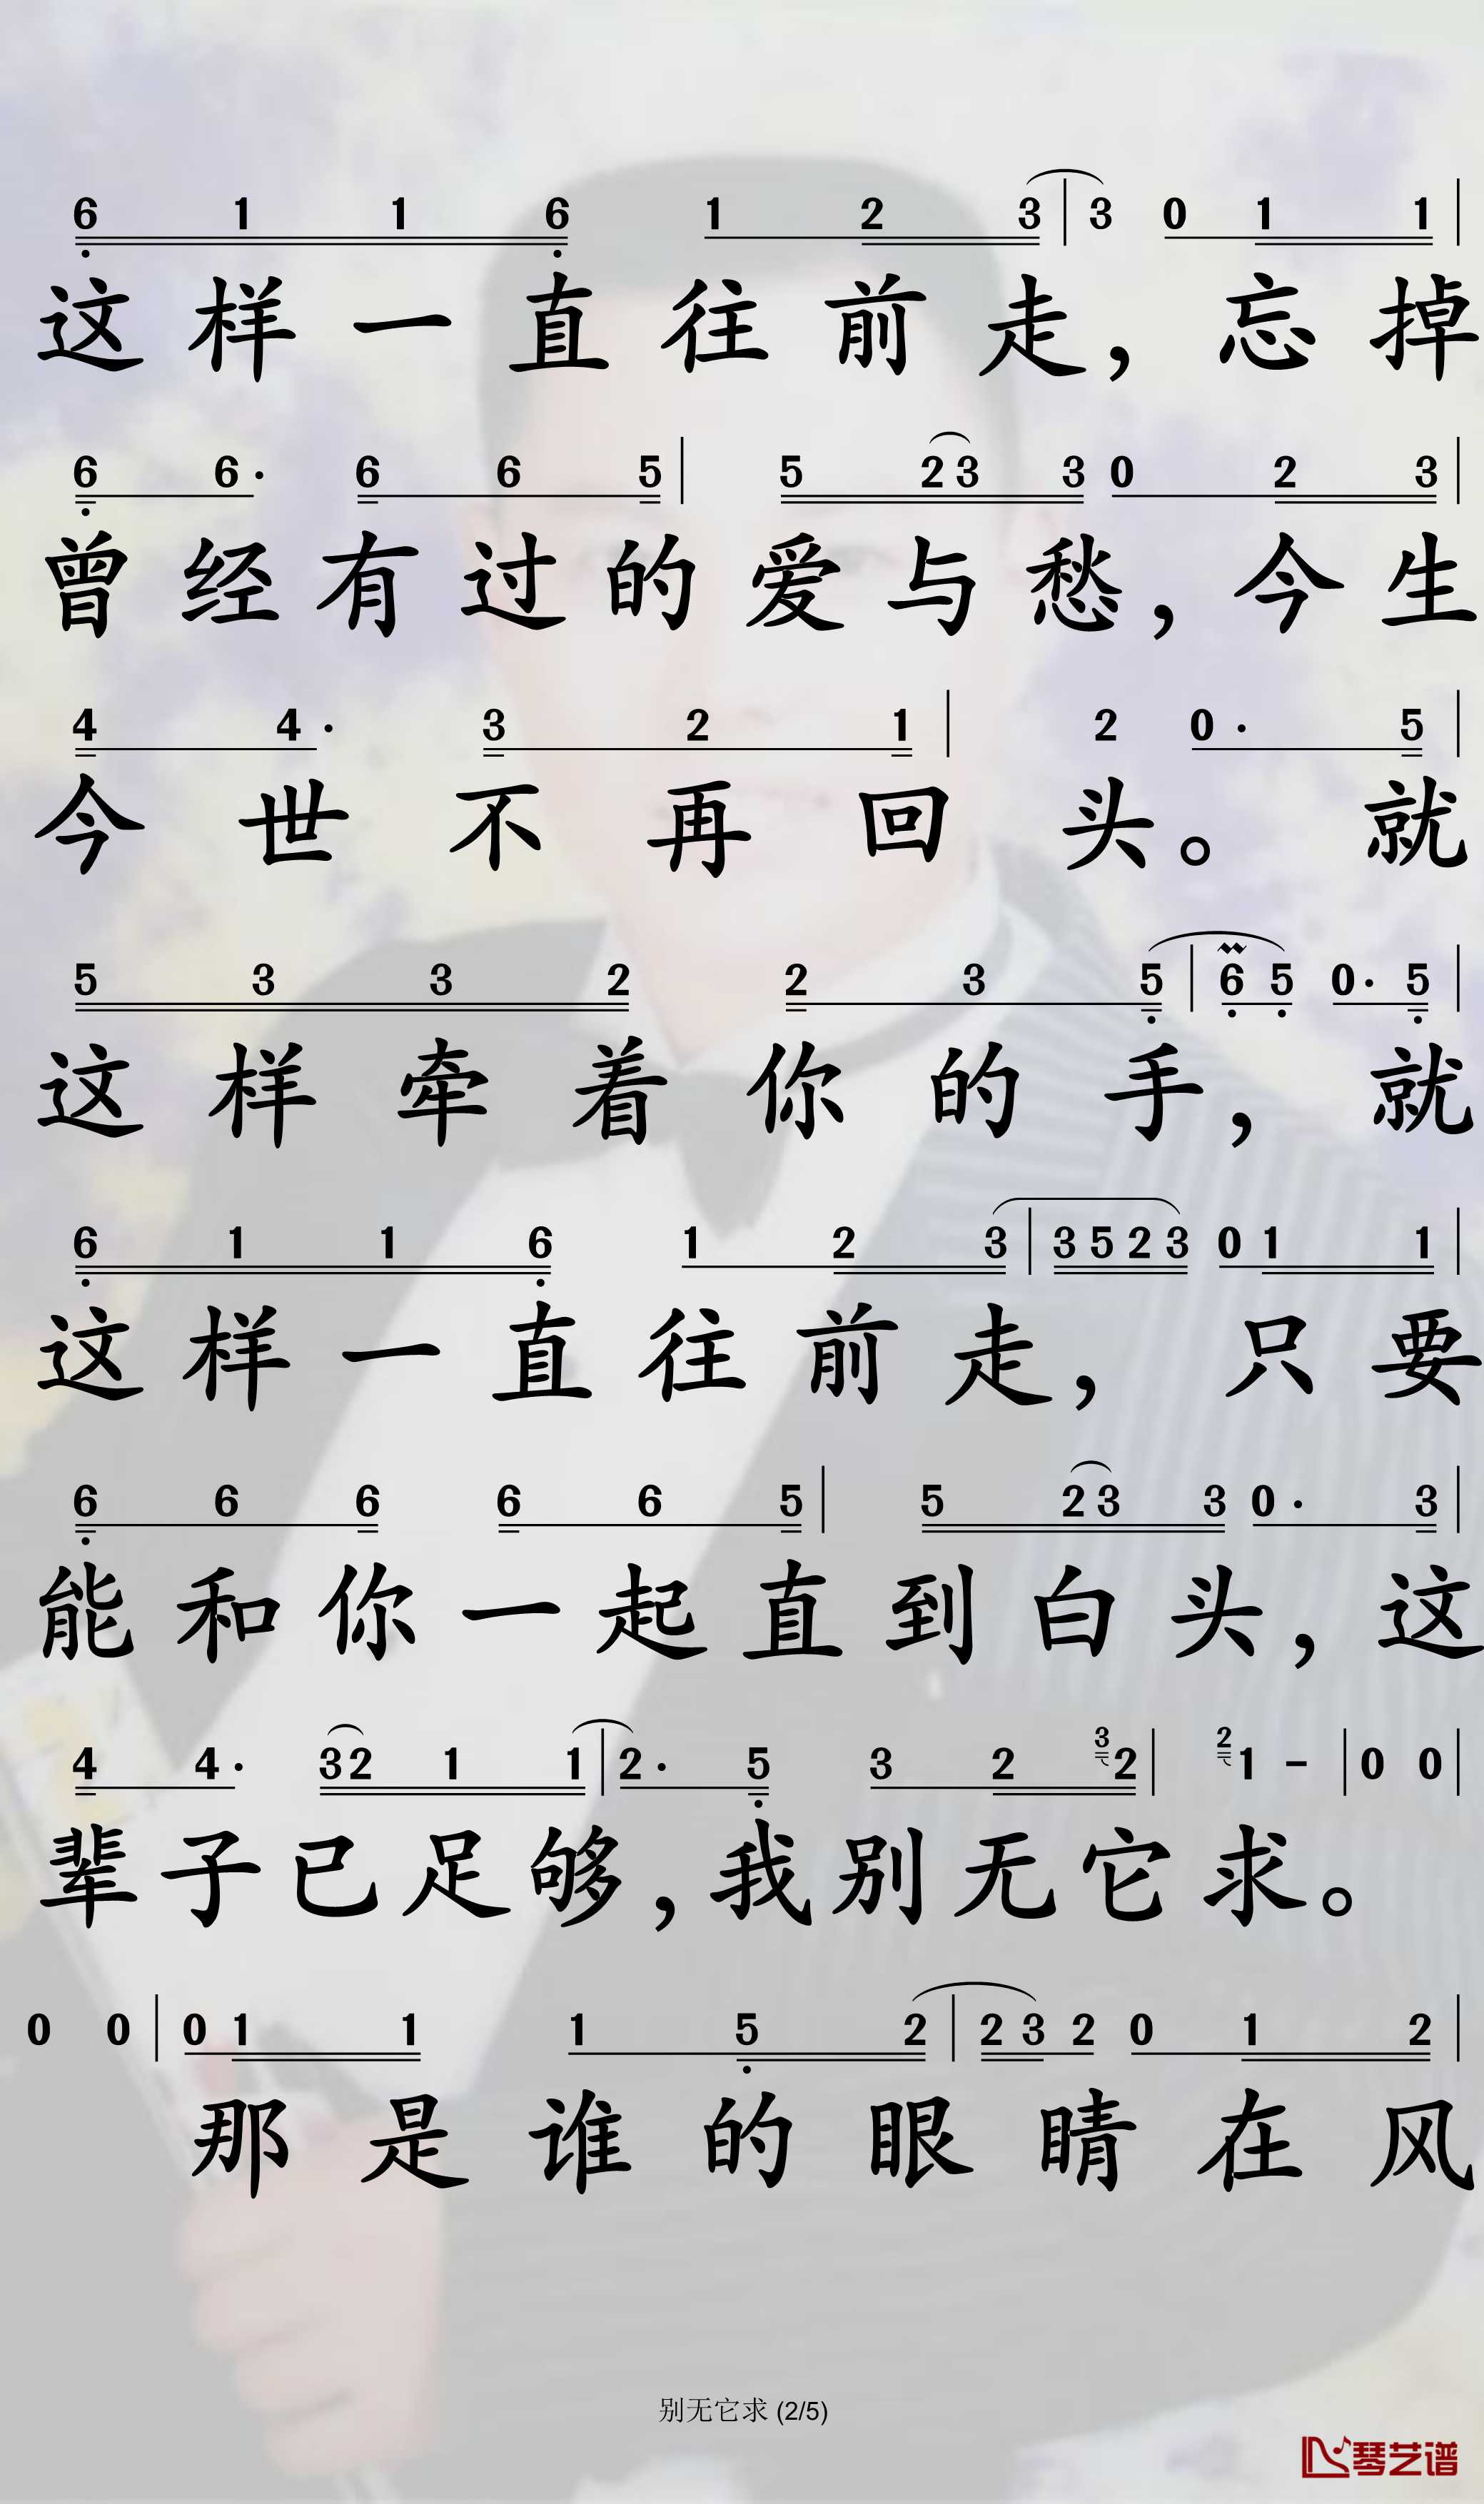 6 1 1 6 1 2 3 | 3 0 1 1 |
这样一直往前走，忘掉
6 6· 6 6 5 | 5 2 3 3 0 2 3 |
曾经有过的爱与愁，今生
4 4· 3 2 1 | 2 0· 5 |
今世不再回头。就
5 3 3 2 2 3 5 | 6 5 0· 5 |
这样牵着你的手，就
6 1 1 6 1 2 3 | 3 5 2 3 0 1 1 |
这样一直往前走，只要
6 6 6 6 6 5 | 5 2 3 3 0· 3 |
能和你一起直到白头，这
4 4· 3 2 1 1 | 2· 5 3 2 3 2 | 2 1 - | 0 0 |
辈子已足够，我别无它求。
0 0 | 0 1 1 1 5 2 | 2 3 2 0 1 2 |
那是谁的眼睛在风
别无它求 (2/5)
琴艺谱